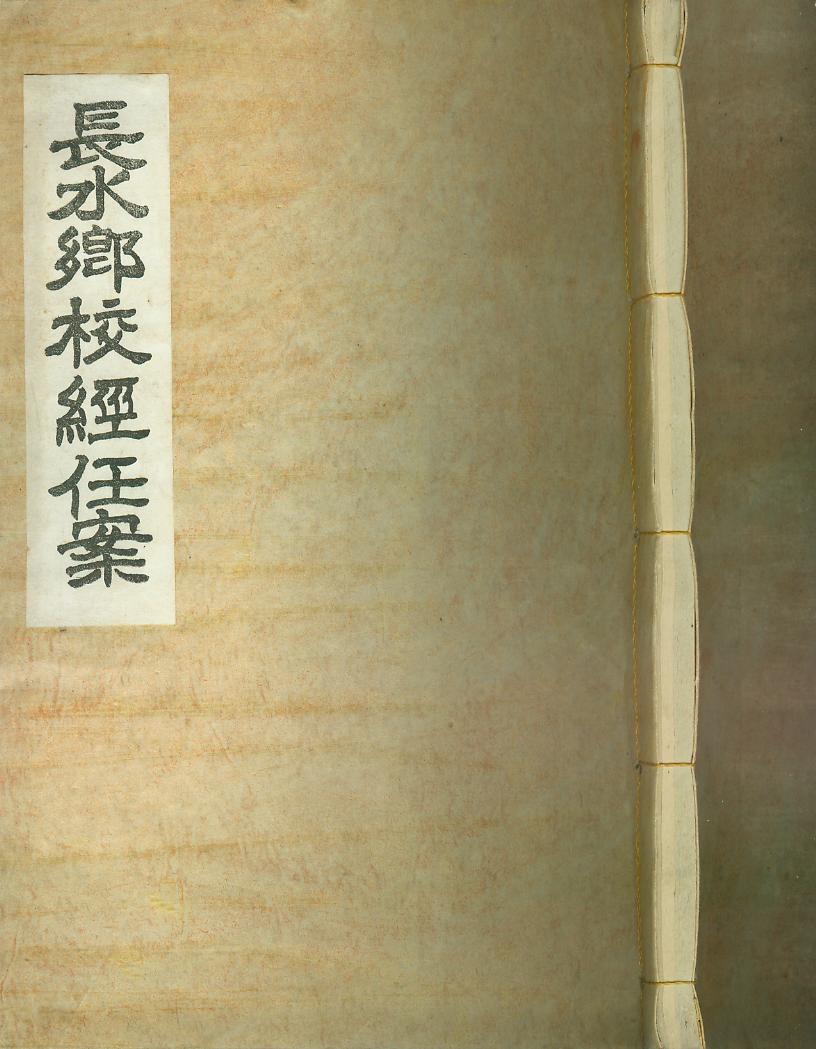 長水鄕校經任案